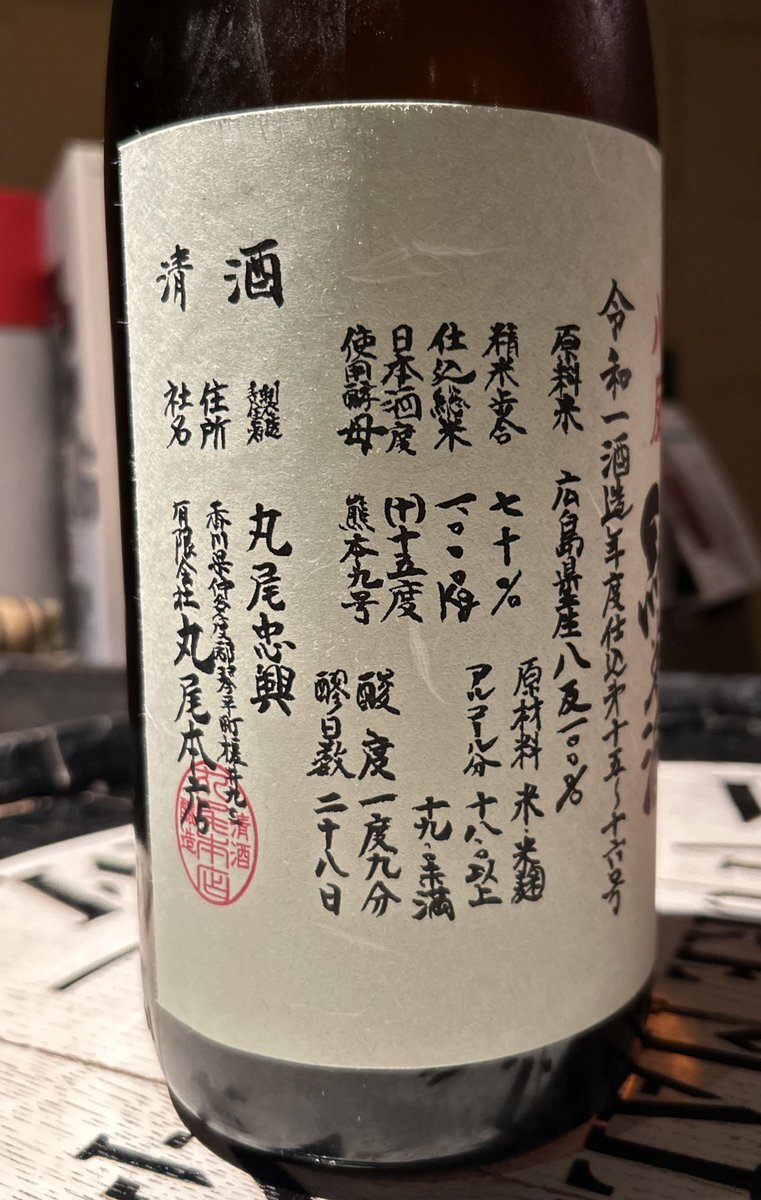 令和一酒造年度仕込み第十五〜十六号
原料米 広島県産八反一〇〇%
精米歩合 七十%
原材料 米・米麹
仕込総米 一、〇〇〇Kg
アルコール分 十八・〇以上
十九・〇未満
日本酒度 (十)十五度
酸度 一度九分
使用酵母 熊本九号
醪日数 二十八日
清酒
製造責任者 丸尾忠興
住所 香川県仲多度郡琴平町榎井九
社名 有限会社 丸尾本店
清酒
丸尾本店
醸造